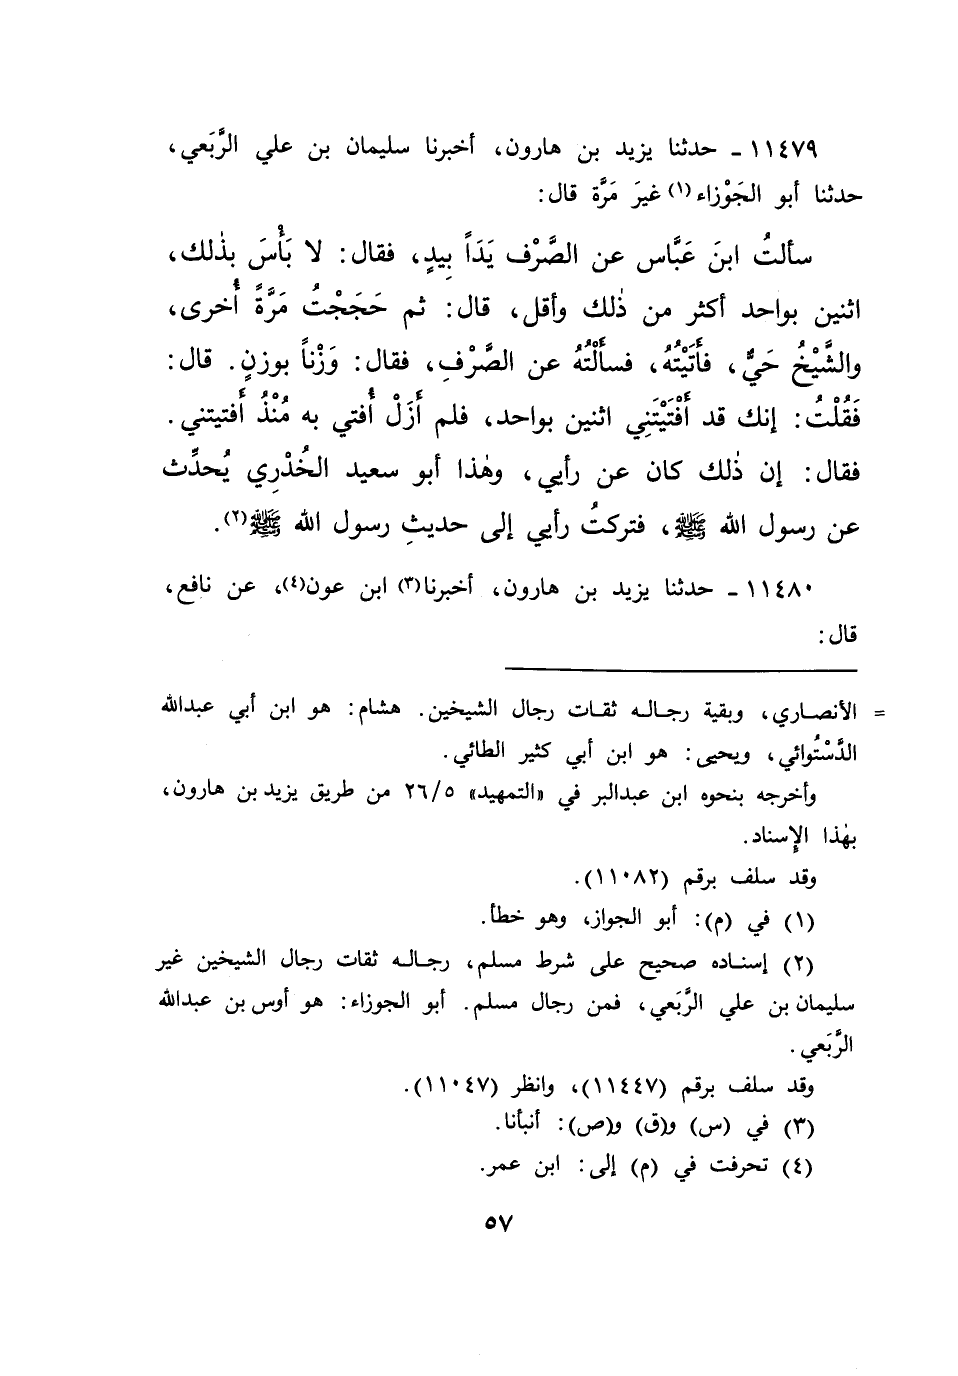 ١١٤٧٩ - حدثنا يزيد بن هارون، أخبرنا سليمان بن علي الرَّبَعي،
حدثنا أبو الجَوْزاء(١) غيرَ مَرَّة قال:
سألتُ ابنَ عَبَّاس عن الصَّرْف يَدَاً بِيدٍ، فقال: لا بَأْسَ بذٰلك،
اثنين بواحد أكثر من ذٰلك وأقل، قال: ثم حَجَجْتُ مَرَّةً أُخرى،
والشَّيْخُ حَيٌّ، فأَتَيْتُهُ، فسألْتُهُ عن الصَّرْفِ، فقال: وَزْناً بوزنٍ. قال:
فَقُلْتُ: إنك قد أَفْتَيْتَنِي اثنين بواحد، فلم أَزَلْ أُفتي به مُنْذُ أَفتيتني.
فقال: إن ذٰلك كان عن رأيي، وهٰذا أبو سعيد الخُدْرِي يُحدِّث
عن رسول الله ﷺ، فتركتُ رأيي إلى حديثِ رسول الله ﷺ(٢).
١١٤٨٠ - حدثنا يزيد بن هارون، أخبرنا(٣) ابن عون(٤)، عن نافع،
قال:
= الأنصاري، وبقية رجاله ثقات رجال الشيخين. هشام: هو ابن أبي عبدالله
الدَّسْتُوائي، ويحيى: هو ابن أبي كثير الطائي.
وأخرجه بنحوه ابن عبدالبر في «التمهيد» ٢٦/٥ من طريق يزيد بن هارون،
بهٰذا الإِسناد.
وقد سلف برقم (١١٠٨٢).
(١) في (م): أبو الجواز، وهو خطأ.
(٢) إسناده صحيح على شرط مسلم، رجاله ثقات رجال الشيخين غير
سليمان بن علي الرَّبَعي، فمن رجال مسلم. أبو الجوزاء: هو أوس بن عبدالله
الرَّبَعي.
وقد سلف برقم (١١٤٤٧)، وانظر (١١٠٤٧).
(٣) في (س) و(ق) و(ص): أنبأنا.
(٤) تحرفت في (م) إلى: ابن عمر.
٥٧